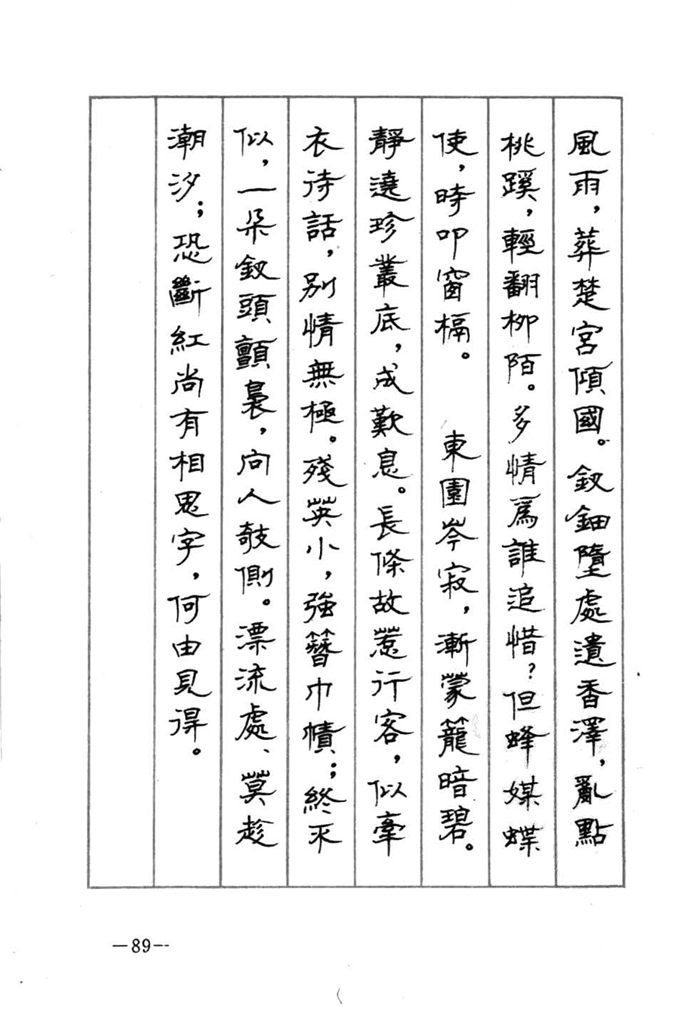 風雨，葬楚宮傾國。釵鈿墮處遺香澤，亂點
桃蹊，輕翻柳陌。多情爲誰追惜？但蜂媒蝶
使，時叩窗槅。　東園岑寂，漸蒙籠暗碧。
靜遶珍叢底，成歎息。長條故惹行客，似牽
衣待話，別情無極。殘英小，強簪巾幘；終不
似，一朵釵頭顫裊，向人攲側。漂流處、莫趁
潮汐；恐斷紅尚有相思字，何由見得。
—89—